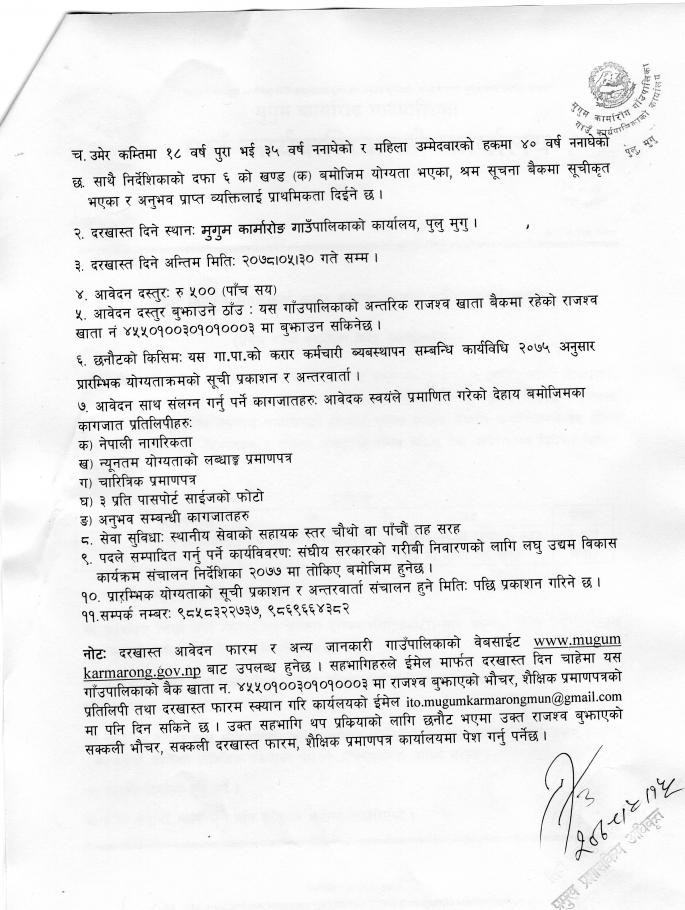 मुगुम कार्मारोंग गाउँपालिका
गाउँ कार्यपालिकाको कार्यालय
पुलु, मुगु
च. उमेर कम्तिमा १८ वर्ष पुरा भई ३५ वर्ष ननाघेको र महिला उम्मेदवारको हकमा ४० वर्ष ननाघेको
छ. साथै निर्देशिकाको दफा ६ को खण्ड (क) बमोजिम योग्यता भएका, श्रम सूचना बैकमा सूचीकृत
भएका र अनुभव प्राप्त व्यक्तिलाई प्राथमिकता दिईने छ ।
२. दरखास्त दिने स्थानः मुगुम कार्मारोङ गाउँपालिकाको कार्यालय, पुलु मुगु ।
३. दरखास्त दिने अन्तिम मितिः २०७८।०५।३० गते सम्म ।
४. आवेदन दस्तुरः रु ५०० (पाँच सय)
५. आवेदन दस्तुर बुझाउने ठाँउ : यस गाउँपालिकाको अन्तरिक राजश्व खाता बैकमा रहेको राजश्व
खाता नं ४५५०१००३०१०१०००३ मा बुझाउन सकिनेछ ।
६. छनौटको किसिमः यस गा.पा.को करार कर्मचारी ब्यबस्थापन सम्बन्धि कार्यविधि २०७५ अनुसार
प्रारम्भिक योग्यताक्रमको सूची प्रकाशन र अन्तरवार्ता ।
७. आवेदन साथ संलग्न गर्नु पर्ने कागजातहरुः आवेदक स्वयंले प्रमाणित गरेको देहाय बमोजिमका
कागजात प्रतिलिपीहरुः
क) नेपाली नागरिकता
ख) न्यूनतम योग्यताको लब्धाङ्क प्रमाणपत्र
ग) चारित्रिक प्रमाणपत्र
घ) ३ प्रति पासपोर्ट साईजको फोटो
ङ) अनुभव सम्बन्धी कागजातहरु
८. सेवा सुविधाः स्थानीय सेवाको सहायक स्तर चौथो वा पाँचौं तह सरह
९. पदले सम्पादित गर्नु पर्ने कार्यविवरणः संघीय सरकारको गरीबी निवारणको लागि लघु उद्यम विकास
कार्यक्रम संचालन निर्देशिका २०७७ मा तोकिए बमोजिम हुनेछ ।
१०. प्रारम्भिक योग्यताको सूची प्रकाशन र अन्तरवार्ता संचालन हुने मितिः पछि प्रकाशन गरिने छ ।
११.सम्पर्क नम्बरः ९८५८३२२७३७, ९८६९६६४३८२
नोटः दरखास्त आवेदन फारम र अन्य जानकारी गाउँपालिकाको वेबसाईट www.mugum
karmarong.gov.np बाट उपलब्ध हुनेछ । सहभागिहरुले ईमेल मार्फत दरखास्त दिन चाहेमा यस
गाँउपालिकाको बैक खाता न. ४५५०१००३०१०१०००३ मा राजश्व बुझाएको भौचर, शैक्षिक प्रमाणपत्रको
प्रतिलिपी तथा दरखास्त फारम स्क्यान गरि कार्यालयको ईमेल ito.mugumkarmarongmun@gmail.com
मा पनि दिन सकिने छ । उक्त सहभागि थप प्रकियाको लागि छनौट भएमा उक्त राजश्व बुझाएको
सक्कली भौचर, सक्कली दरखास्त फारम, शैक्षिक प्रमाणपत्र कार्यालयमा पेश गर्नु पर्नेछ ।
प्रमुख प्रशासकिय अधिकृत